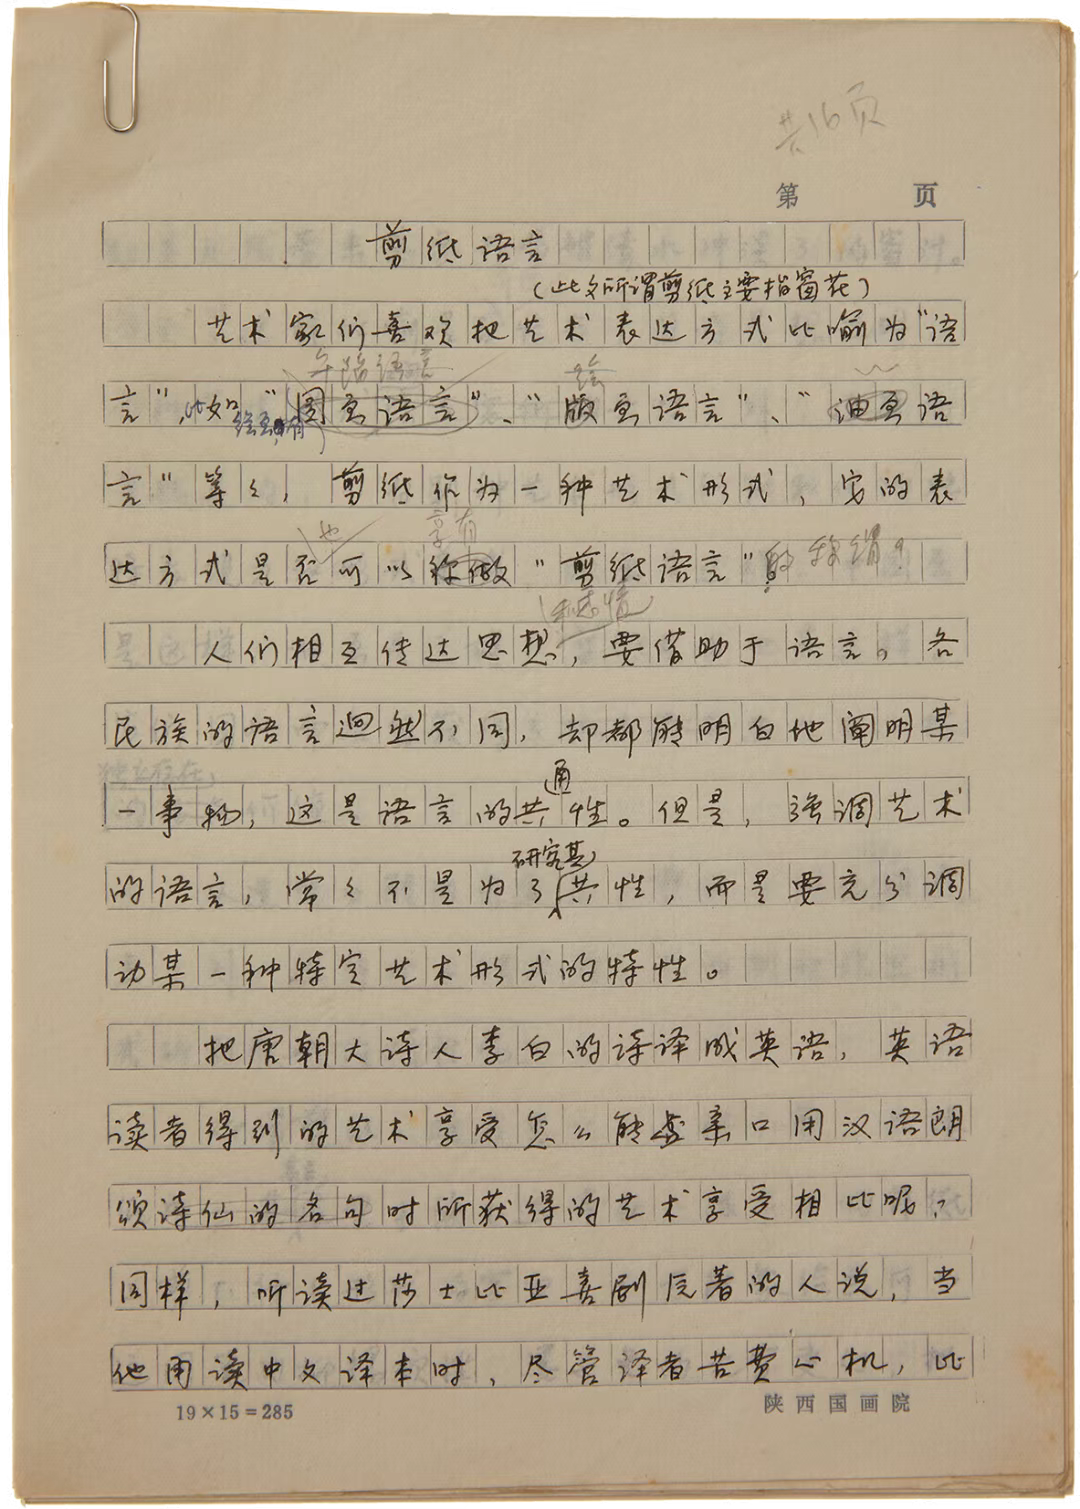 共16页
第 页
剪纸语言
（此文所谓剪纸主要指窗花）
艺术家们喜欢把艺术表达方式比喻为“语
年陌语言 绘
言”，比如“国画语言”、“版画语言”、“油画语
绘画有
言”等々，剪纸作为一种艺术形式，它的表
也 享有
达方式是否可以称做“剪纸语言”的称谓？
和感情
人们相互传达思想，要借助于语言。各
民族的语言迥然不同，却都能明白地阐明某
独立存在， 通
一事物，这是语言的共性。但是，强调艺术
研究其
的语言，常々不是为了共性，而是要充分调
动某一种特定艺术形式的特性。
把唐朝大诗人李白的诗译成英语，英语
读者得到的艺术享受怎么能亲口用汉语朗
颂诗仙的名句时所获得的艺术享受相比呢？
同样，听读过莎士比亚喜剧原著的人说，当
他用读中文译本时，尽管译者苦费心机，比
19×15=285
陕西国画院